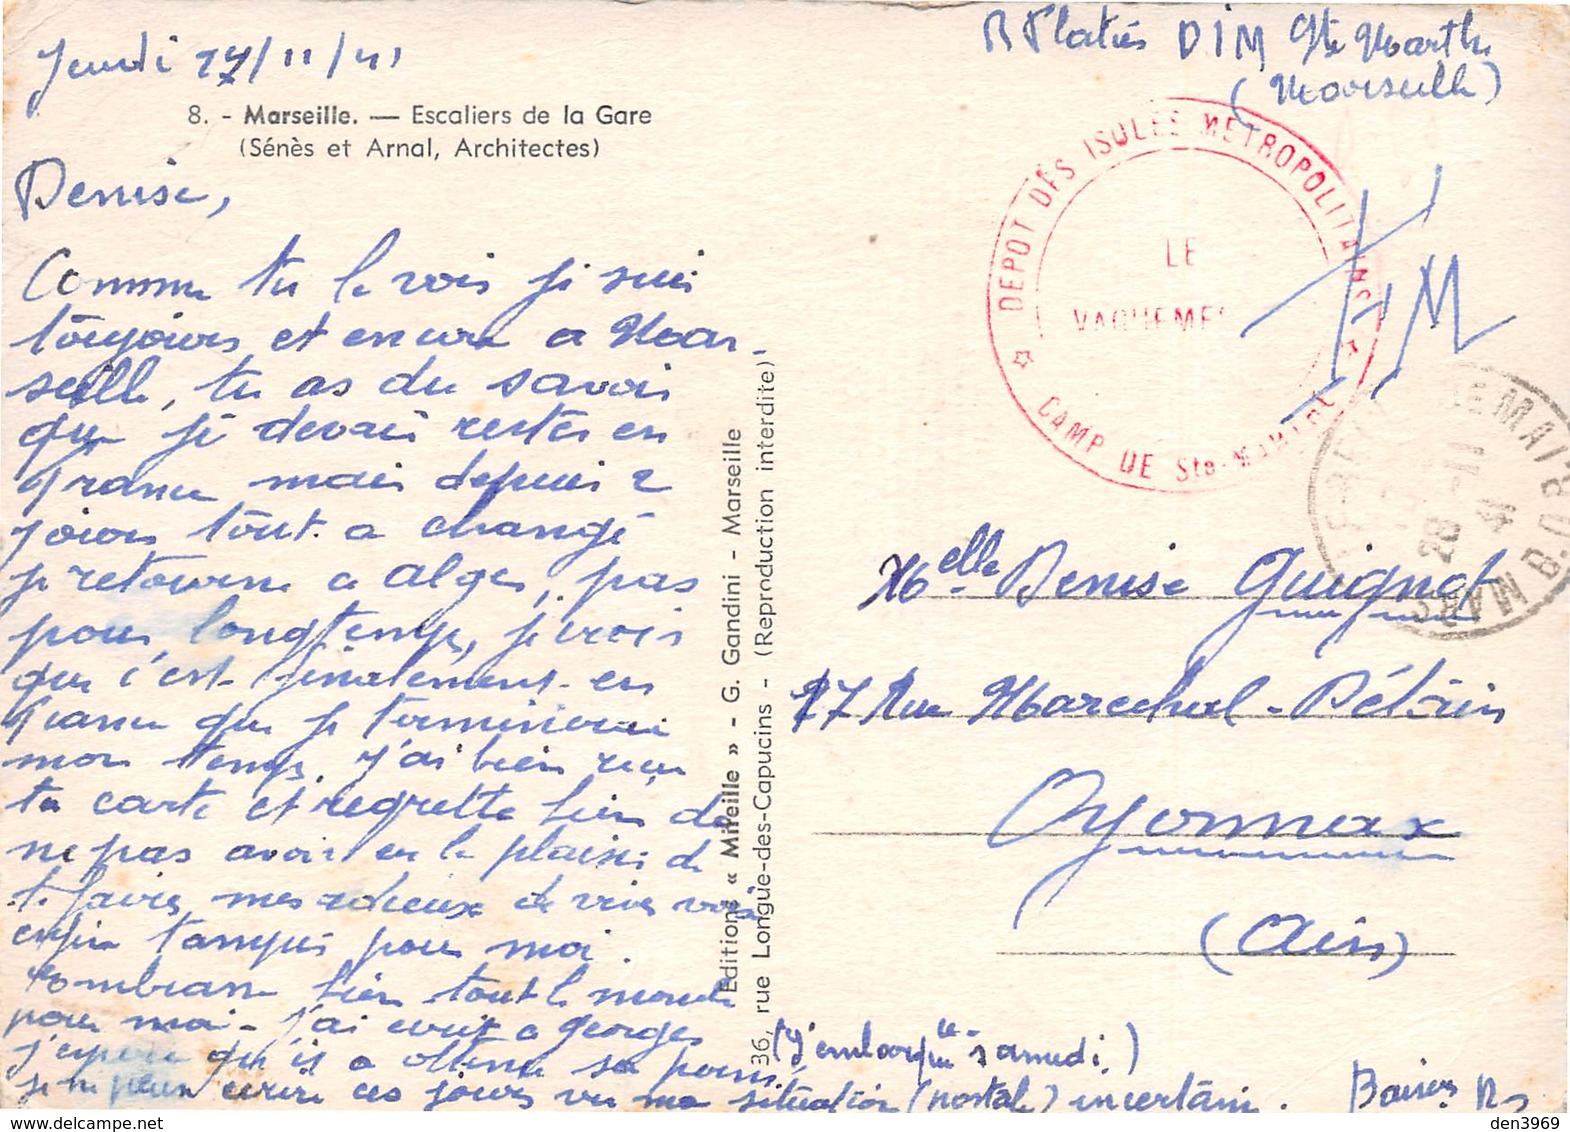 Jeudi 27/11/41
R Platies DIM Ste Marthe
(Marseille)
8. - Marseille. — Escaliers de la Gare
(Sénès et Arnal, Architectes)
Denise,
Comme tu le vois je suis
toujours et encore a Mar-
seille, tu as du savoir
que je devais rester en
France mais depuis 2
jours tout a changé
je retourne a Alger, pas
pour longtemps, je crois
que c'est finalement en
France que je terminerai
mon temps. J'ai bien reçu
ta carte et regrette bien de
ne pas avoir eu le plaisir de
te faire mes adieux de vive voix
enfin tampis pour moi.
Embrasse bien tout le monde
pour moi - J'ai ecrit a Georges
j'espère qu'il a obtenu sa permi.
(J'embarque le samedi)
je ne peux ecrire ces jours vu ma situation (postale) incertaine. Baisers
Editions « Mireille » - G. Gandini - Marseille
36, rue Longue-des-Capucins - (Reproduction interdite)
DEPOT DES ISOLES METROPOLITAINS
LE
VAGUEMES
CAMP DE Ste-MARTHE
F.M
28 -11
41
MARS
B.D.R
Melle Denise Guignot
27 Rue Marechal-Pétain
Oyonnax
(Ain)
den3969